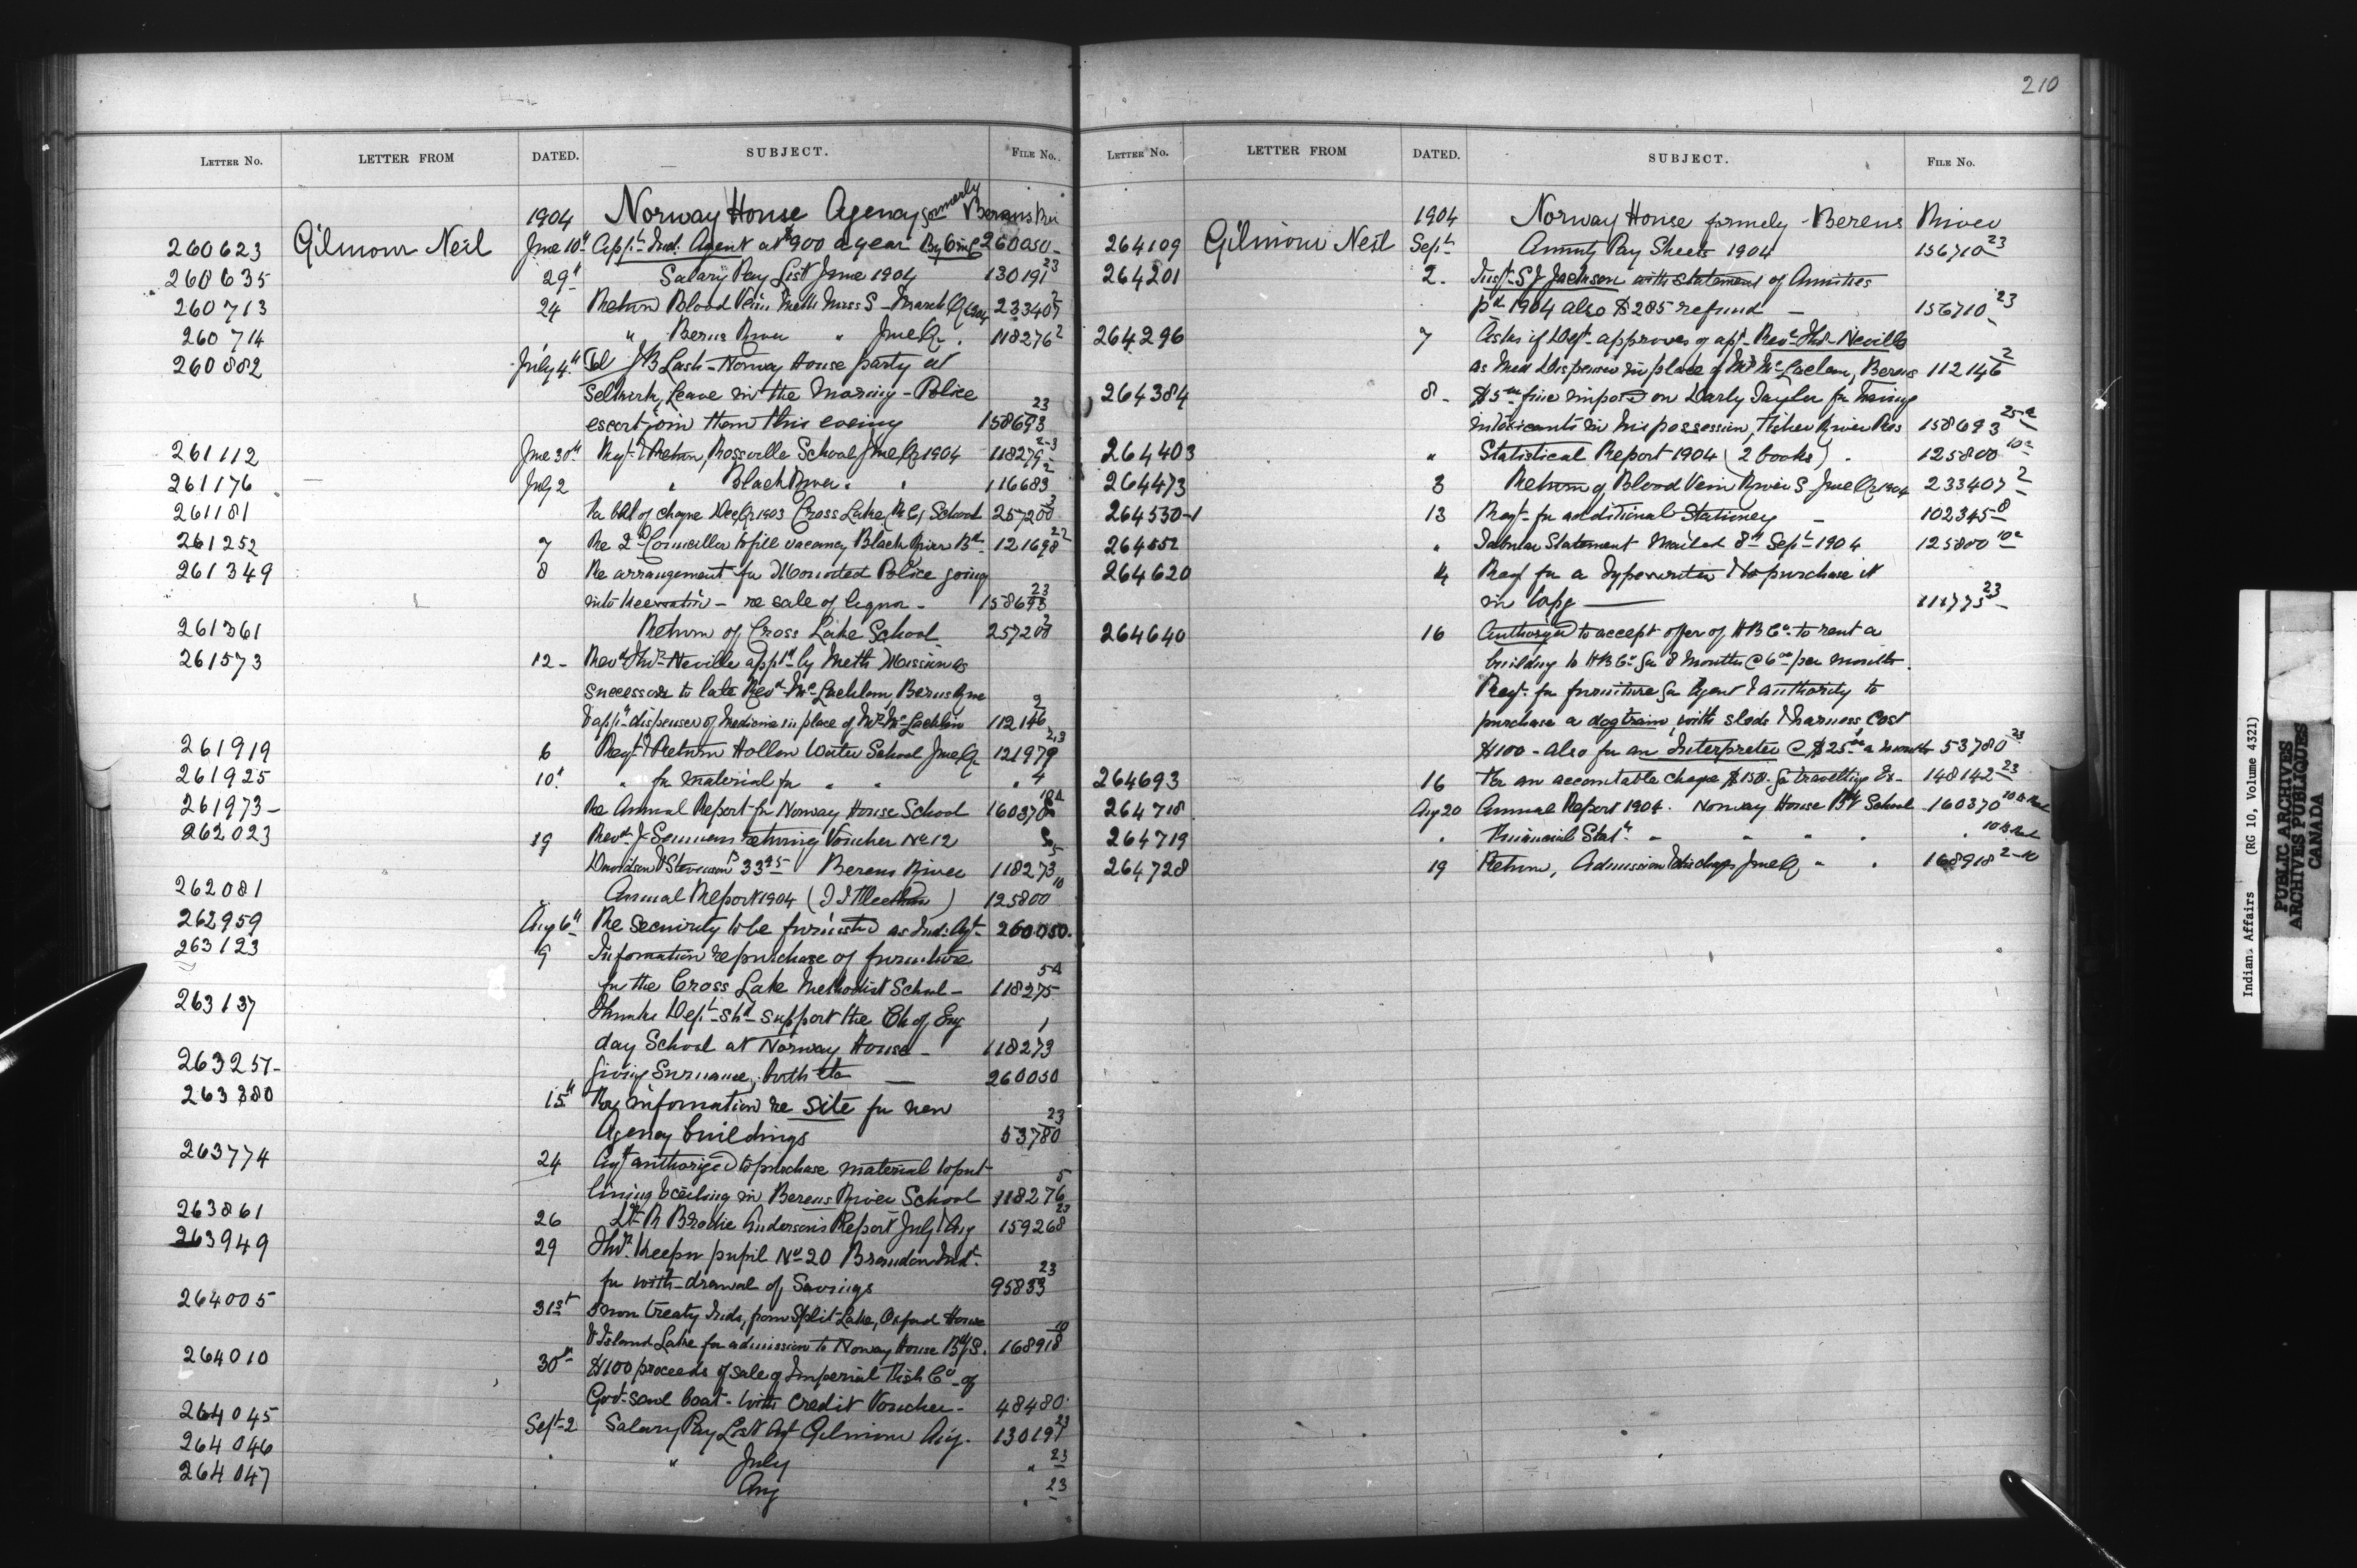 210
LETTER No. LETTER FROM DATED. SUBJECT. FILE No.
1904 Norway House Agency formerly Berens Riv
260623 Gilmour Neil June 10th App't Ind. Agent at $900 a year By O in C 260050
260635 29th Salary Pay List June 1904 130191-23
260713 24 Return Blood Vein Meth Miss S - March Qr 1904 233407-2
260714 " Berens River " June Qr. 118276-2
260882 July 4th Tel J B Lash - Norway House party at
Selkirk, Leave in the morning - Police
escort join them this evening 158693-23
261112 June 30th Reqt & Return, Rossville School June Qr 1904 118279-2-3
261176 July 2 " Black River " " 116683-2
261181 Re bal of cheque Dec Qr 1903 Cross Lake (R C) School 257200-3
261252 7 Re 2d Councillor to fill vacancy Black River Bd 121698-22
261349 8 Re arrangement for Mounted Police going
into Keewatin - re sale of liquor - 158693-23
261361 Return of Cross Lake School 257200-2
261573 12 - Revd Thos Neville appd by Meth Mission as
successor to late Revd McLachlan, Berens River
& appt dispenser of Medicine in place of Mr McLachlan 112146-2
261919 6 Reqt & Return Hollow Water School June Qr 121979-2,3
261925 10th " for material for " " " 4
261973 - Re Annual Report for Norway House School 160370-10a
262023 19 Revd J Semmens returning Voucher No 12
Davidson & Stevenson 33 95 Berens River 118273-5
262081 Annual Report 1904 ( ) 125800-10
262959 Aug 6th Re security to be furnished as Ind. Agt - 260050.
263123 9 Information re purchase of furniture
for the Cross Lake Methodist School - 118275-5A
263137 Thinks Dept shd support the Ch of Eng
day School at Norway House - 118273-1
263257 - Giving Surname, birth etc — 260050
263380 15th Req information re site for new
Agency buildings 53780-23
263774 24 Agt authorized to purchase material to put
lining & ceiling in Berens River School 118276-5
263861 26 Dr R Brodie Anderson's Report July & Aug 159268-23
263949 29 Thos. Keeper pupil No 20 Brandon Indl.
for with-drawal of Savings 95833-23
264005 31st 5 non treaty Inds, from Split Lake, Oxford House
& Island Lake for admission to Norway House Bdg S. 168918-10
264010 30th $100 proceeds of sale of Imperial Fish Co - of
Govt - boat - with credit Voucher - 48480
264045 Sept 2 Salary Pay List Agt Gilmour Aug. 130191-23
264046 " " July " 23
264047 " Aug " 23
LETTER No. LETTER FROM DATED. SUBJECT. FILE No.
1904 Norway House formely - Berens River
264109 Gilmour Neil Sept Annuity Pay Sheets 1904 156710-23
264201 2. Inspt S J Jackson with statement of Annuities
pd 1904 also $285 refund - 156710-23
264296 7 Asks if Dept approves of appt Revd Thos Neville
as Med Dispenser in place of Mr McLachlan, Berens 112146-2
264384 8 - $5 00 fine imposed on Darly Taylor for having
intoxicants in his possession, Fisher River Res 158693-25-2
264403 " Statistical Report 1904 (2 books) . 125800-10a
264473 3 Return of Blood Vein River S June Qr 1904 233407-2
264530-1 13 Reqt for additional Stationery - 102345-8
264552 " Tabular Statement Mailed 8th Sept 1904 125800-10a
264620 14 Req for a Typewriter & to purchase it
in Wpg — 111775-23
264640 16 Authorized to accept offer of H B Co to rent a
building to H B Co for 8 Months @ 6 00 per month.
Reqt for furniture for Agent & authority to
purchase a dog train, with sleds & harness cost
$100 - also for an Interpreter @ $25 00 a month 53780-23
264693 16 For an accountable cheque $150. for travelling Ex - 148142-23
264718 Aug 20 Annual Report 1904. Norway House Bdg School 160370-10
264719 " Financial Statt. " " " " " 10
264728 19 Return, Admission & discharges June Qr " " 168918-2-10
Indian Affairs (RG 10, Volume 4321)
PUBLIC ARCHIVES
ARCHIVES PUBLIQUES
CANADA